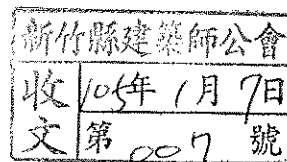 新竹縣建築師公會
收文 105年1月7日
第007號